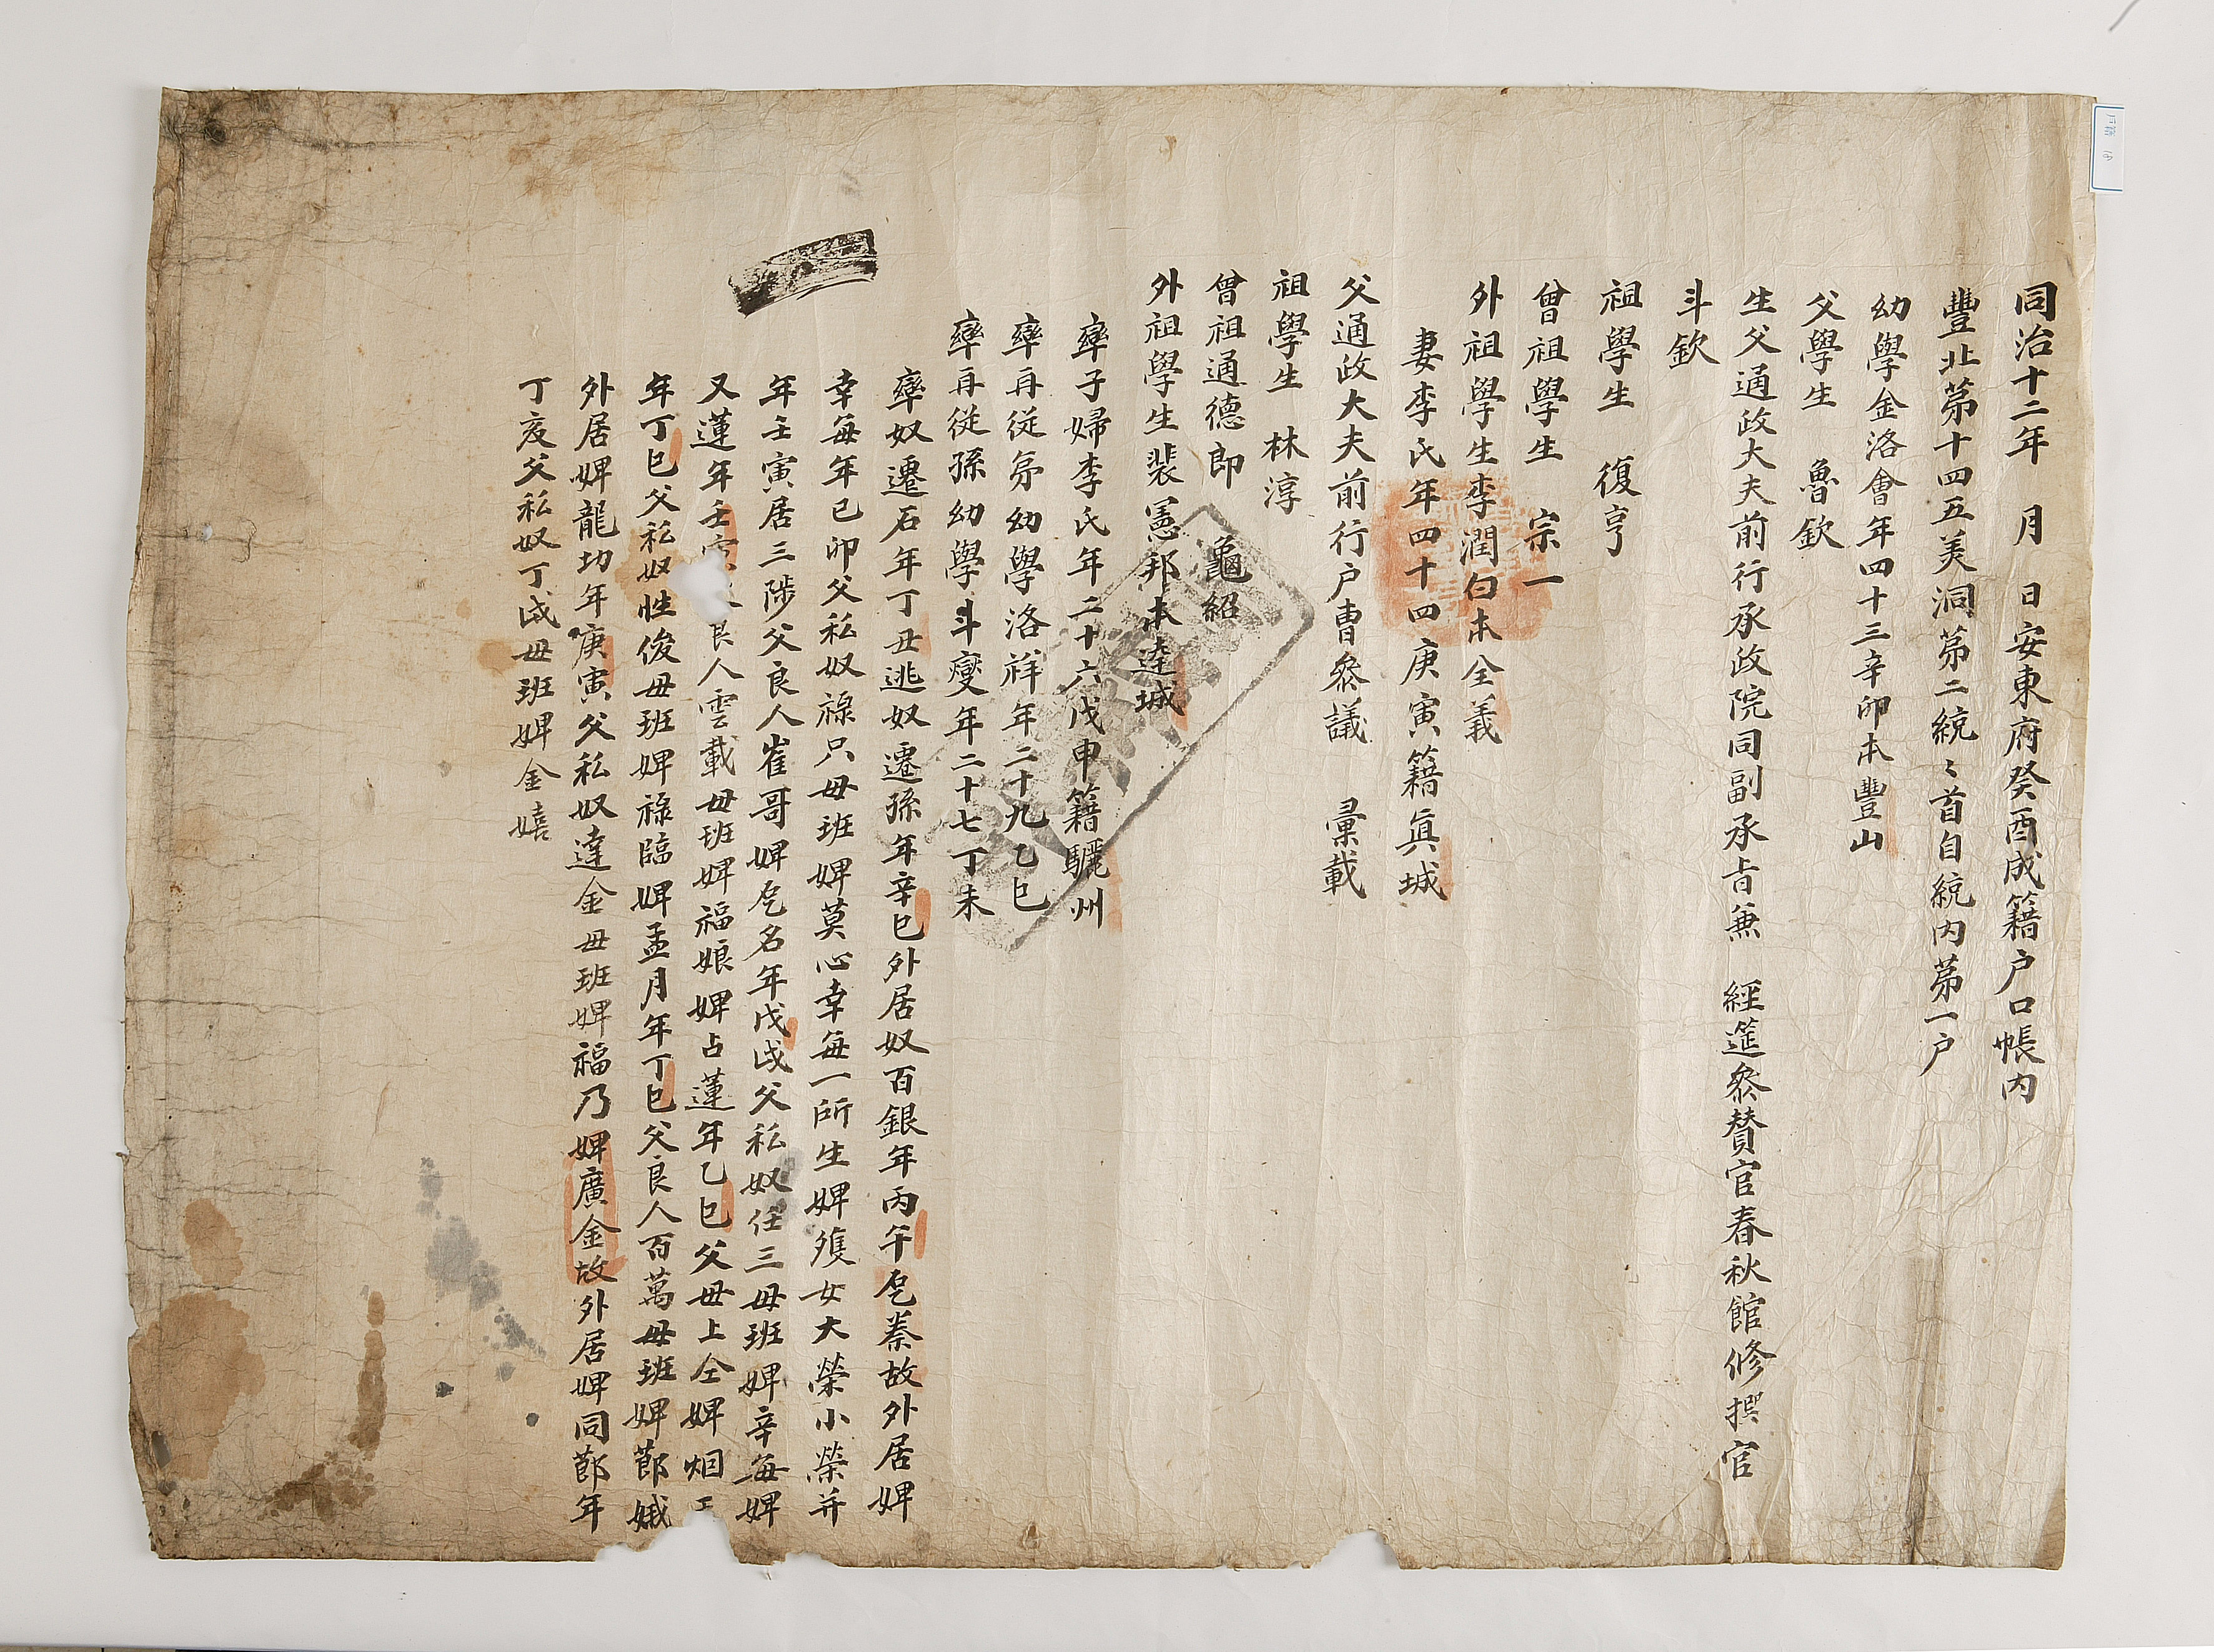 同治十二年 月 日安東府癸酉成籍户口帳内
豐北第十四五美洞第二統〻首自統内第一户
幼學金洛會年四十三辛卯本豐山
父學生 魯欽
生父通政大夫前行承政院同副承旨兼 經筵叅賛官春秋館修撰官
斗欽
祖學生 復亨
曾祖學生 宗一
外祖學生李潤白本全義
妻李氏年四十四庚寅籍眞城
父通政大夫前行户曹叅議 彙載
祖學生 林淳
曾祖通德郎 龜紹
外祖學生裴憲邦本達城
率子婦李氏年二十六戊申籍驪州
率再從弟幼學洛祥年二十九乙巳
率再從孫幼學斗燮年二十七丁未
率奴遷石年丁丑逃奴遷孫年辛巳外居奴百銀年丙午故外居婢
幸每年己卯父私奴祿只母班婢莫心幸每一所生婢女大榮小榮并
年壬寅居三陟父良人崔哥婢名年戊戌父私奴任三母班婢辛每婢
又蓮年壬良人雲載母班婢福娘婢占蓮年乙巳父母上仝婢
年丁巳父私奴性俊母班婢祿臨婢孟月年丁巳父良人百萬母班婢節娥
外居婢龍功年庚寅父私奴達金母班婢福乃婢廣金故外居婢同節年
丁亥父私奴丁戌母班婢金嬉
户籍